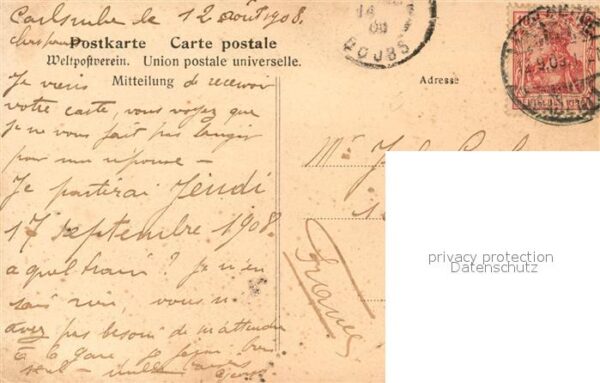 Carlsruhe le 12 août 1908.
Postkarte Carte postale
Weltpostverein. Union postale universelle.
Mitteilung
Adresse
DOUBS
Je viens de recevoir
votre carte, vous voyez que
je ne vous fait pas languir
pour ma réponse —
Je partirai Jeudi
17 septembre 1908.
a quel train? Je n'en
sais rien, vous n
avez pas besoin de m'attendre
à la gare
seul —
Mr J.
France
privacy protection
Datenschutz